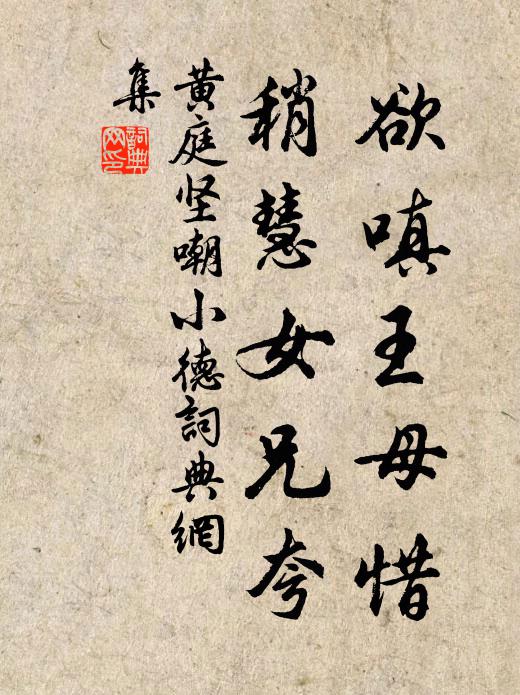 欲嗔王母惜
稍慧女兄夸
黄庭坚嘲小德詞典網
集
詞典
网印